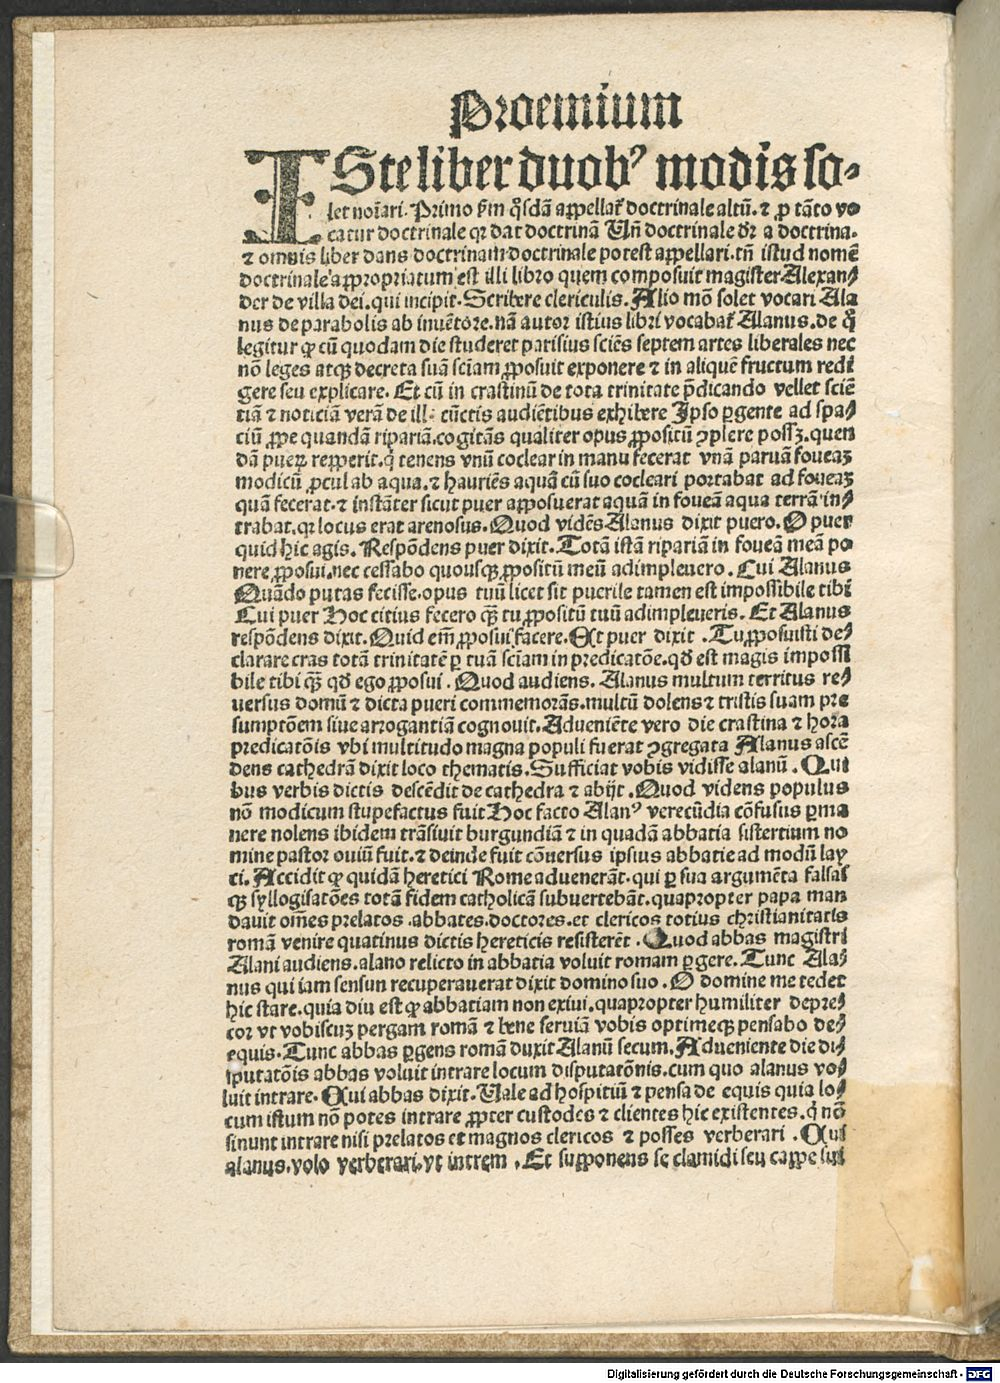 Proemium
ISte liber duobꝰ modis so⸗
let noı̄ari. Primo ẜm q̊sdā appellat᷑ doctrinale altū. ⁊ ꝓ tāto vo
catur doctrinale qꝛ dat doctrinā Uñ doctrinale dr̄ a doctrina.
⁊ omnis liber dans doctrinam doctrinale potest appellari. tñ istud nomē
doctrinale appropriatum est illi libro quem composuit magister Alexan⸗
der de villa dei. qui incipit. Scribere clericulis. Alio mō solet vocari Ala
nus de parabolis ab inuētore. nā autor istius libri vocabat᷑ Alanus. de q̊
legitur ꝙ cū quodam die studeret parisius sciēs septem artes liberales nec
nō leges atqꝫ decreta suā sciam ꝓposuit exponere ⁊ in aliquē fructum redi
gere seu explicare. Et cū in crastinū de tota trinitate p̄dicando vellet sciē
tiā ⁊ noticiā verā de ill cūctis audiētibus exhibere Ipso ꝑgente ad spa⸗
ciū ꝓpe quandā ripariā. cogitās qualiter opus ꝓpositū ꝯplere possꝫ. quen
dā pueꝝ repperit. q̇ tenens vnū coclear in manu fecerat vnā paruā foueaꝫ
modicū ꝓcul ab aqua. ⁊ hauriēs aquā cū suo cocleari portabat ad foueaꝫ
quā fecerat. ⁊ instāter sicut puer apposuerat aquā in foueā aqua terrā in⸗
trabat. qꝛ locus erat arenosus. Quod vidēs Alanus dixit puero. O puer
quid hic agis. Respōdens puer dixit. Totā istā ripariā in foueā meā po
nere ꝓposui. nec cessabo quousqꝫ ꝓpositū meū adimpleuero. Cui Alanus
Quādo putas fecisse. opus tuū licet sit puerile tamen est impossibile tibi
Cui puer Hoc citius fecero qꝫ̄ tu ꝓpositū tuū adimpleueris. Et Alanus
respōdens dixit. Quid em̄ ꝓposui facere. At puer dixit . Tu ꝓposuisti de⸗
clarare cras totā trinitatē ꝑ tuā sciam in predicatōe. qd̄ est magis impossi
bile tibi qꝫ̄ qd̄ ego ꝓposui . Quod audiens. Alanus multum territus re⸗
uersus domū ⁊ dicta pueri commemorās. multū dolens ⁊ tristis suam pre
sumptōem siue arrogantiā cognouit. Adueniēte vero die crastina ⁊ hora
predicatōis vbi multitudo magna populi fuerat ꝯgregata Alanus ascē
dens cathedrā dixit loco thematis. Sufficiat vobis vidisse alanū . Qui
bus verbis dictis descēdit de cathedra ⁊ abijt . Quod videns populus
nō modicum stupefactus fuit Hoc facto Alanꝰ verecūdia cōfusus ꝑma
nere nolens ibidem trāsiuit burgundiā ⁊ in quadā abbatia sistertium no
mine pastor ouiū fuit. ⁊ deinde fuit cōuersus ipsius abbatie ad modū lay
ci. Accidit ꝙ quidā heretici Rome aduenerāt. qui ꝑ sua argumēta falsas
qꝫ syllogisatōes totā fidem catholicā subuertebāt. quapropter papa man
dauit om̄es prelatos .abbates. doctores. et clericos totius christianitatis
romā venire quatinus dictis hereticis resisterēt . Quod abbas magistri
Alani audiens. alano relicto in abbatia voluit romam ꝑgere. Tunc Ala⸗
nus qui iam sensun recuperauerat dixit domino suo . O domine me tedet
hic stare. quia diu est ꝙ abbatiam non exiui. quapropter humiliter depre⸗
cor vt vobiscuꝫ pergam romā ⁊ bene seruiā vobis optimeqꝫ pensabo de⸗
equis. Tunc abbas ꝑgens romā duxit Alanū secum. Adueniente die di⸗
sputatōis abbas voluit intrare locum disputatōnis. cum quo alanus vo⸗
luit intrare. Cui abbas dixit. Uale ad hospitiū ⁊ pensa de equis quia lo⸗
cum istum nō potes intrare ꝓpter custodes ⁊ clientes hic existentes. q̇ nō
sinunt intrare nisi prelatos et magnos clericos ⁊ posses verberari . Cui
alanus. volo verberari. vt intrem . Et supponens se clamidi seu cappe sui
Digitalisierung gefördert durch die Deutsche Forschungsgemeinschaft - DFG